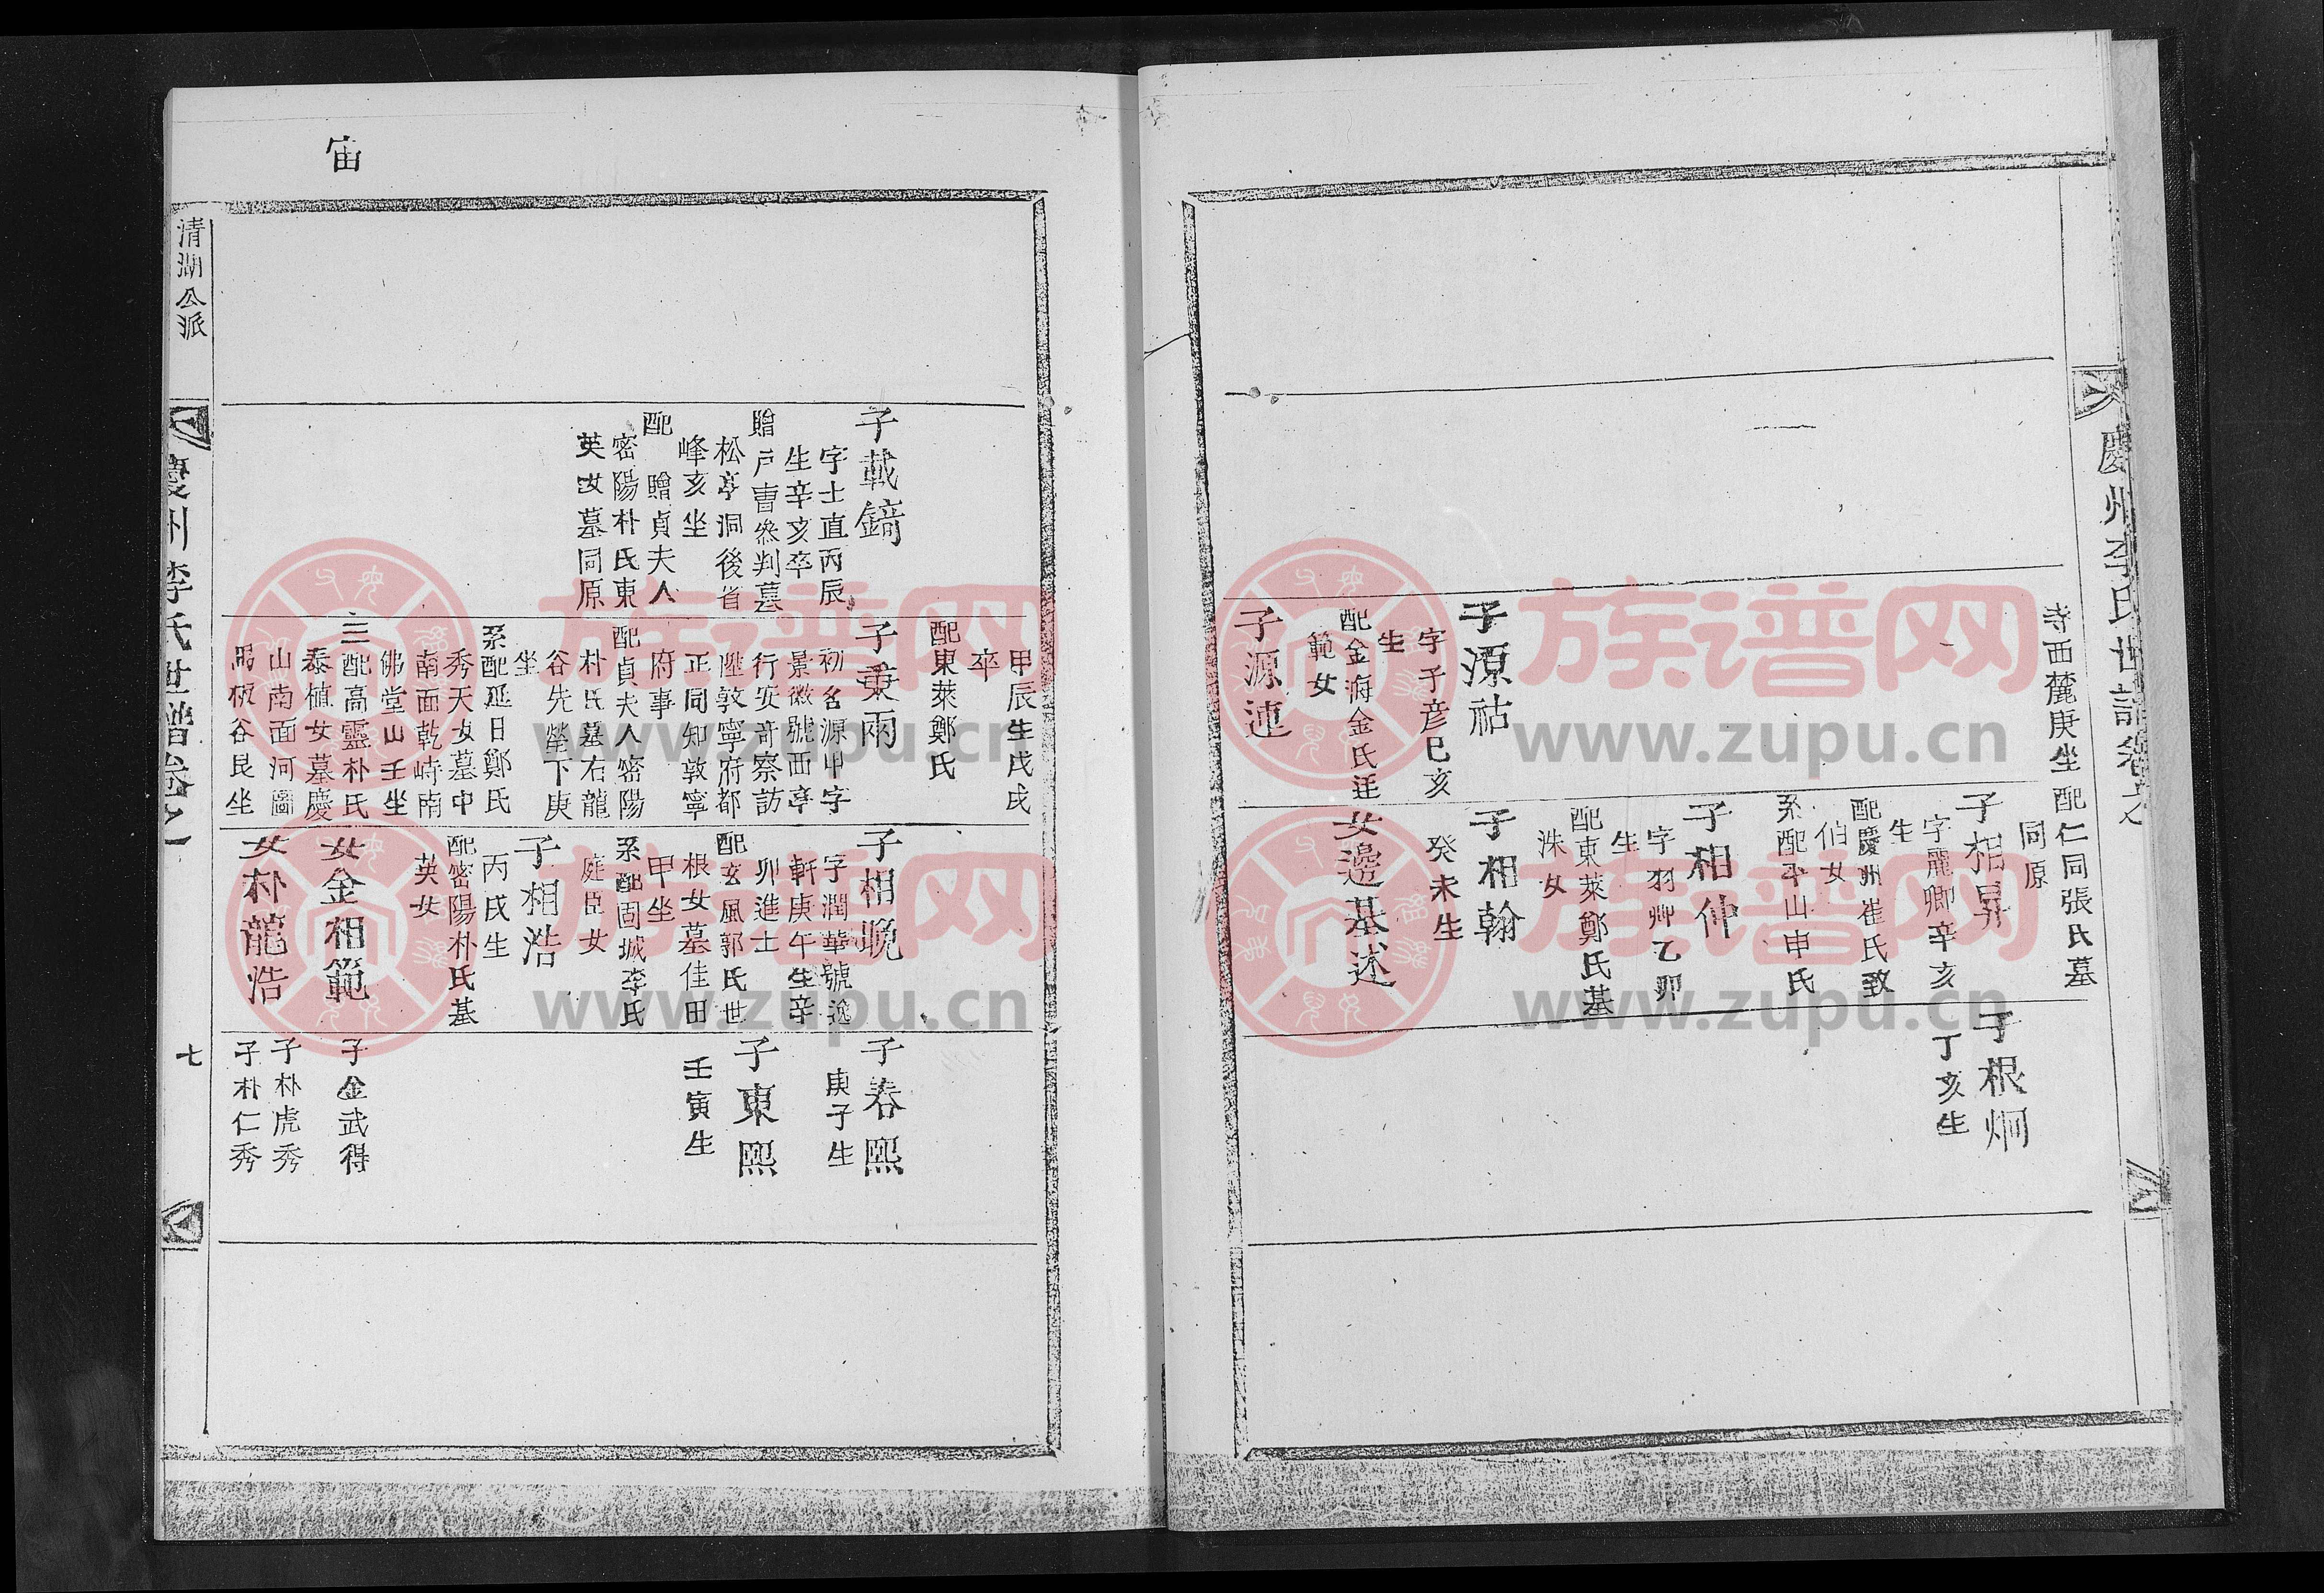 慶州李氏世譜卷之
寺西麓庚坐
配仁同張氏墓
同原
子相昇
字麗卿辛亥
生
配慶州崔氏致
伯女
系配平山申氏
子根炯
丁亥生
子相仲
字羽卿乙卯
生
配東萊鄭氏基
洙女
子源祜
字子彦己亥
生
配金海金氏廷
範女
子相翰
癸未生
女邊基述
子源
甲辰生戌戌
卒
配東萊鄭氏
子載鎬
字士直丙辰
生辛亥卒
贈戶曹叅判墓
松亭洞後省
峰亥坐
配贈貞夫人
密陽朴氏東
英女墓同原
子秉雨
初名源中字
景徽號西亭
行安奇察訪
陞敦寧府都
正同知敦寧
府事
配貞夫人密陽
朴氏墓右龍
谷先塋下庚
坐
系配延日鄭氏
秀天女墓中
南面乾峙南
佛堂山壬坐
三配高靈朴氏
泰植女墓慶
山南面河圖
谷艮坐
子相晩
字潤華號逸
軒庚午生辛
卯進士
配玄風郭氏世
根女墓佳田
甲坐
系配固城李氏
庭臣女
子相浩
丙戌生
配密陽朴氏基
英女
女金相範
女朴龍浩
子春熙
庚子生
子東熙
壬寅生
子金武得
子朴虎秀
子朴仁秀
宙
清湖公派
慶州李氏世譜卷之一
七
族谱网
www.zupu.cn
族谱网
www.zupu.cn
族谱网
www.zupu.cn
族谱网
www.zupu.cn